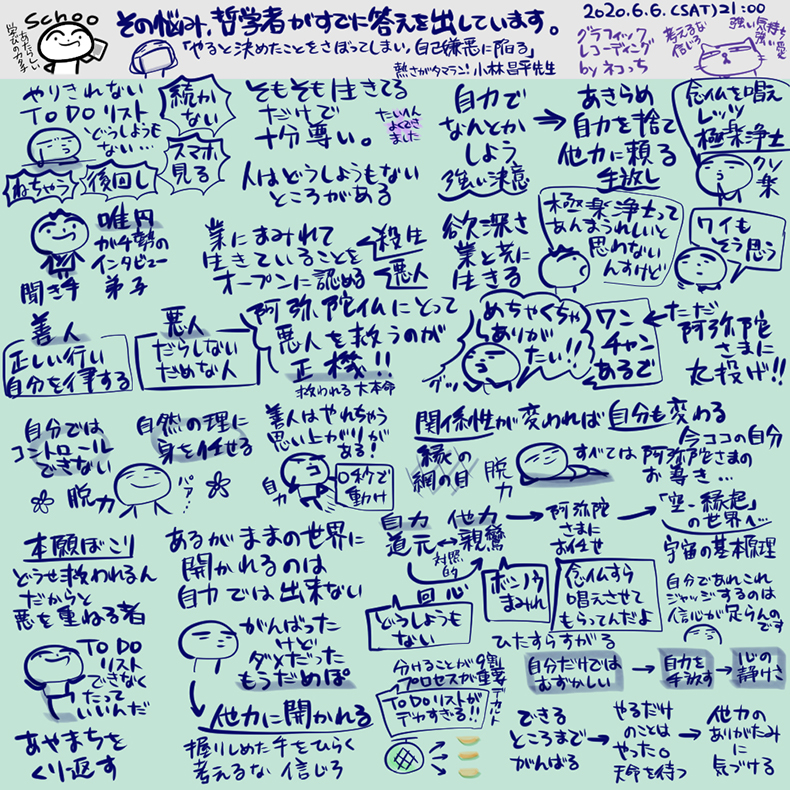 schoo
学びのカタチ
あたらしい
その悩み、哲学者がすでに答えを出しています。
「やると決めたことをさぼってしまい、自己嫌悪に陥る」
熱さがタマラン! 小林昌平先生
2020.6.6.(SAT)21:00
グラフィック
レコーディング
by ネコっち
考えるな
信じろ
強い気持ち
強い愛
やりきれない
TO DO リスト
どうしようも
ない…
続か
ない
スマホ
見る
ねちゃう
後回し
そもそも生きてる
だけで
十分尊い。
たいへん
よくでき
ました
人はどうしようもない
ところがある
自力で
なんとか
しよう
強い決意
あきらめ
自力を捨て
他力に頼る
手放し
念仏を唱え
レッツ
極楽浄土
クソ
楽
唯円
が千勢の
インタビュー
弟子
聞き手
業にまみれて
生きていることを
オープンに認める
殺生
悪人
欲深さ
業と共に
生きる
極楽浄土って
あんまうれしいと
思わない
んすけど
ワイも
そう思う
善人
正しい行い
自分を律する
悪人
だらしない
だめな人
阿弥陀仏にとって
悪人を救うのが
正機!!
救われる大本命
めちゃくちゃ
ありが
たい!!
グッ
ワン
チャン
あるで
ただ
阿弥陀
さまに
丸投げ!!
自分では
コントロール
できない
脱力
自然の理に
身を任せる
パァ…
善人はやれちゃう
思い上がりが
ある!
自力
0秒で
動け
関係性が変われば自分も変わる
縁の
網の目
脱力
すべては
今ココの自分
阿弥陀さまの
お導き…
本願ぼこり
どうせ救われるん
だからと
悪を重ねる者
TO DO
リスト
できなく
たって
いいんだ
あやまちを
くり返す
あるがままの世界に
開かれるのは
自力では出来ない
がんばった
けど
ダメだった
もうだめぽ
他力に開かれる
握りしめた手をひらく
考えるな 信じろ
自力
道元
他力
親鸞
対照的
回心
阿弥陀
さまに
お任せ
「空・縁起」
の世界へ…
宇宙の基本原理
どうしようも
ない
ボンノウ
まみれ
念仏すら
唱えさせて
もらってんだよ
自分であれこれ
ジャッジするのは
信心が足らんの
です
ひたすらすがる
分けることが9割
プロセスが重要
デカルト
TO DOリストが
デカすぎる!!
自分だけでは
むずかしい
自力を
手放す
心の
静けさ
できる
ところまで
がんばる
やるだけ
のことは
やった。
天命を待つ
他力の
ありがたみ
に
気づける